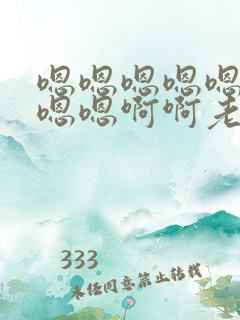 嗯嗯嗯嗯嗯
嗯嗯啊啊老
333
未经同意禁止转载